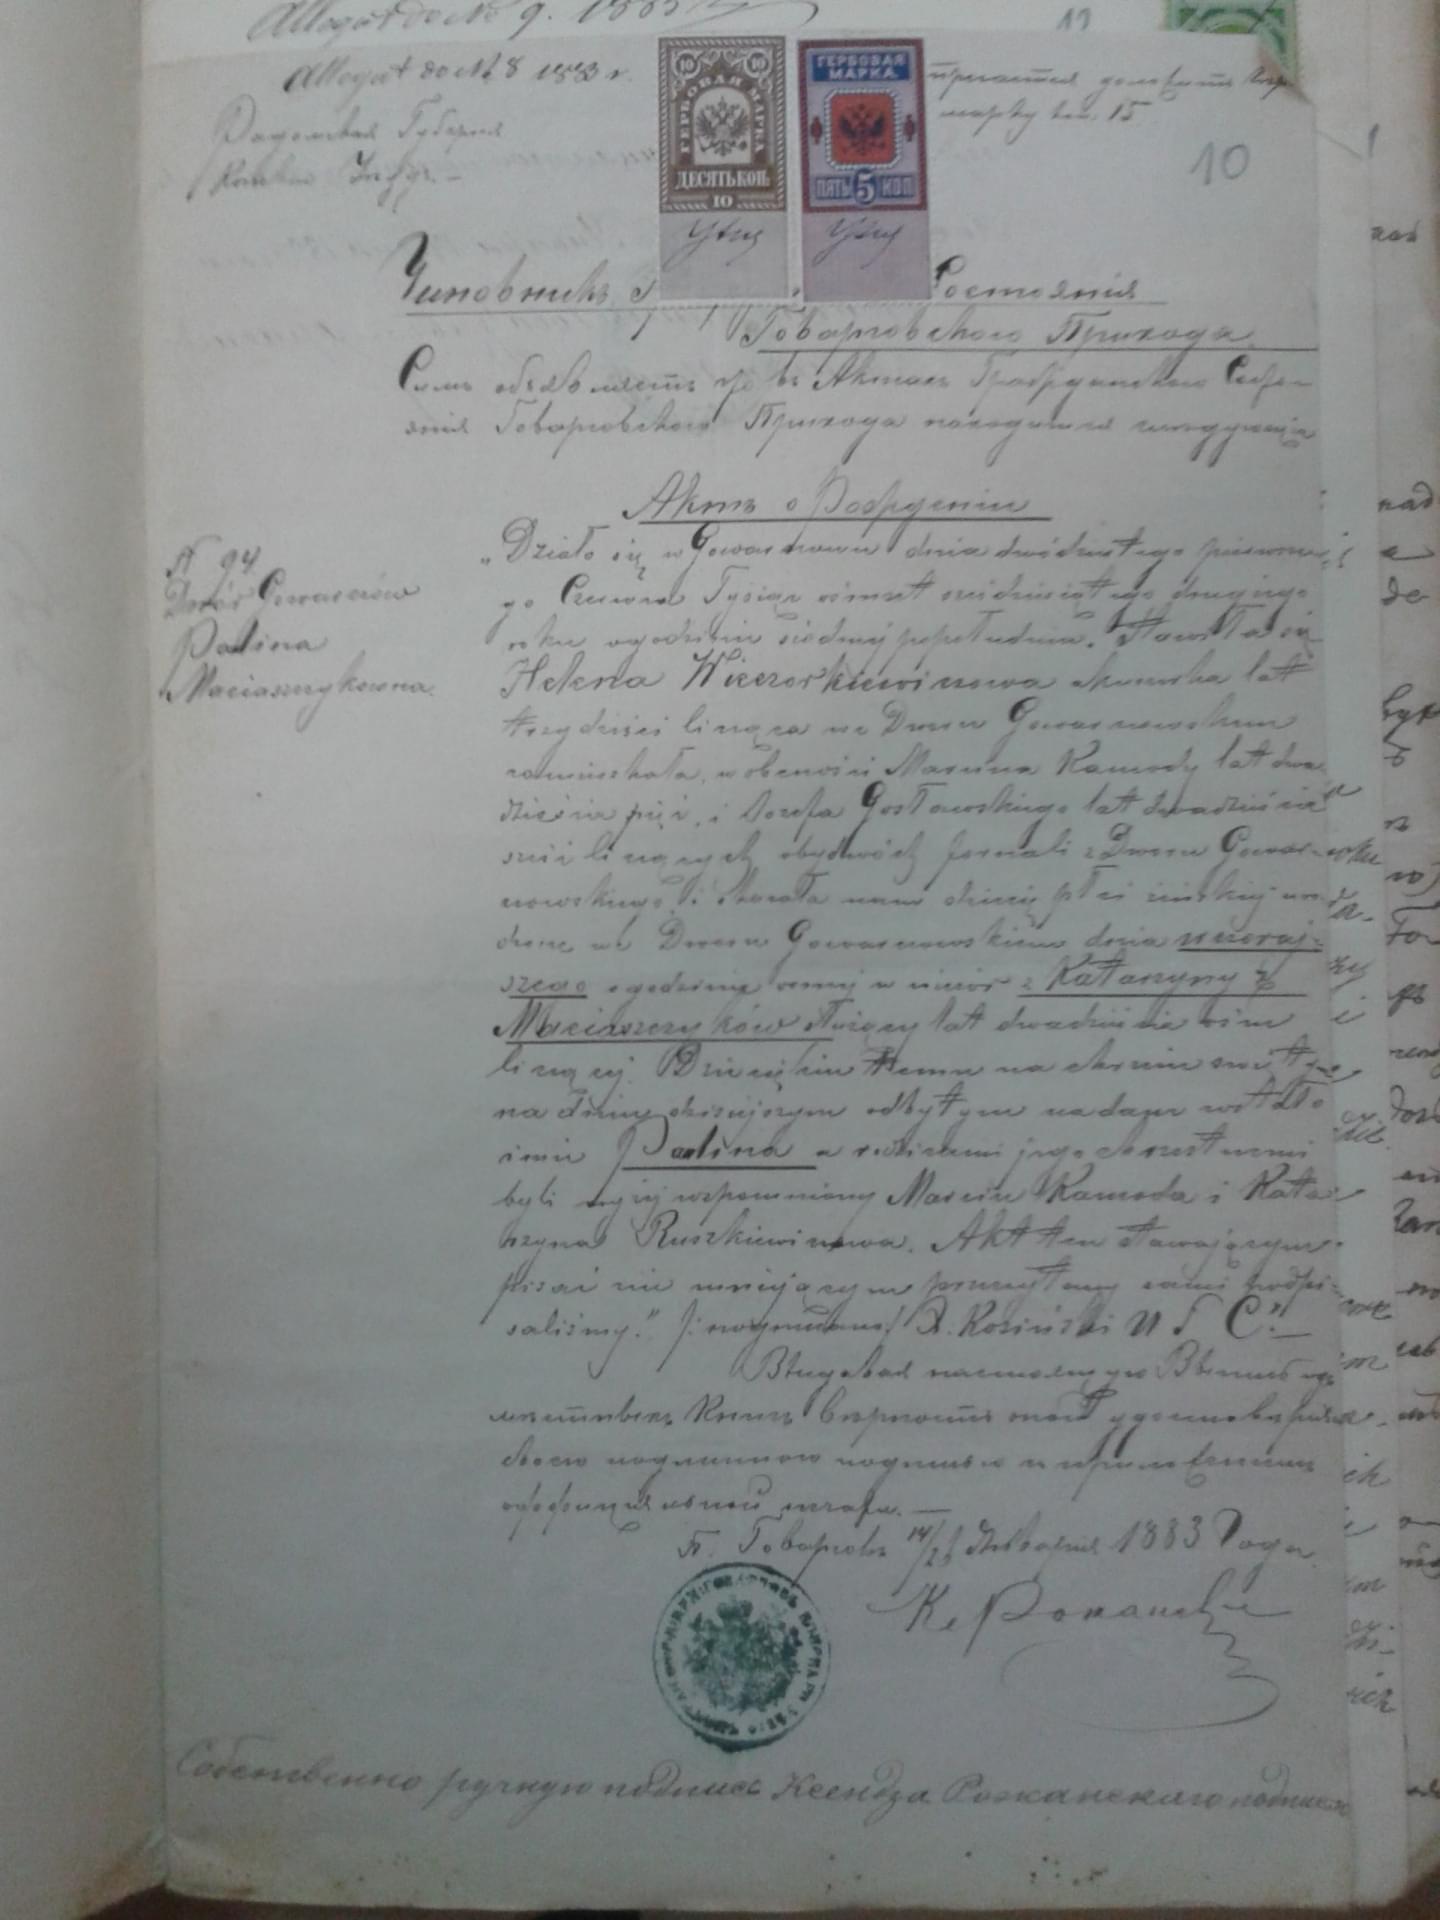 Allegat do № 9. 1883
Allegat do № 8 1883 r.
Радомская Губернія
10
ГЕРБОВАЯ МАРКА
ДЕСЯТЬ КОП.
10
ГЕРБОВАЯ
МАРКА
ПЯТЬ 5 КОП
марку коп. 15
10
Чиновникъ Состоянія
Говарчовскаго Прихода
Симъ объявляетъ что въ Актахъ Гражданскаго Состо-
янія Говарчовскаго Прихода находится слѣдующій
Актъ о Рожденіи
№ 94
Dwór Gowarczów
Paulina
Maciaszczykówna.
„Działo się w Gowarczowie dnia dwudziestego pierwsze-
go Czerwca Tysiąc ośmset sześdziesiątego drugiego
roku o godzinie siódmej po południu. Stawiła się
Helena Wieczorkiewiczowa Akuszerka lat
trzydzieści licząca we Dworze Gowarczowskim
zamieszkała, w obecności Marcina Kamody lat dwa-
dzieścia pięć, i Józefa Gosławskiego lat dwadzieścia
sześć liczących obydwóch fornali z Dworu Gowar-
czowskiego, i okazała nam dziecię płci żeńskiej uro-
dzone we Dworze Gowarczowskim dnia wczoraj-
szego o godzinie ósmej w wieczór z Katarzyny z
Maciaszczyków służącej lat dwadzieścia ośm
liczącej. Dziecięciu temu na chrzcie świętym
na dniu dzisiejszym odbytym nadane zostało
imie Paulina a rodzicami jego chrzestnemi
byli wyżej wspomniony Marcin Kamoda i Kata-
rzyna Ruszkiewiczowa. Akt ten stawającym
pisać nie umiejącym przeczytany sami podpi-
saliśmy." /: podpisano/ X. Kosiński U S C."
Выдавая настоящую Выпись изъ
Книгъ вѣрность оной удостовѣряю
своею подписью и приложеніемъ
оффиціальной печати. —
П. Говарчовъ 14/26 Января 1883 Года.
К. Рожанскі
Собственно ручную подпись Ксендза Рожанскаго